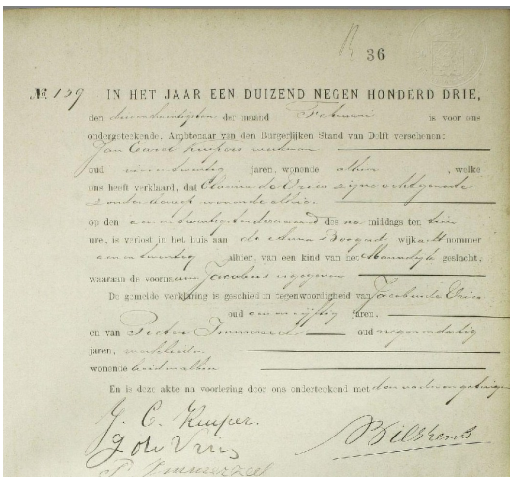 36
№ 159 IN HET JAAR EEN DUIZEND NEGEN HONDERD DRIE,
den drie en twintigsten der maand Februari is voor ons
ondergeteekende, Ambtenaar van den Burgerlijken Stand van Delft verschenen:
Jan Carel Kuiper werkman
oud twintig jaren, wonende alhier, welke
ons heeft verklaard, dat de Vries zijne echtgenoote
zonder beroep wonende alhier
op den een en twintigsten dezer maand des na middags ten tien
ure, is verlost in het huis aan de Bogard wijk nummer
een en twintig alhier, van een kind van het Mannelijk geslacht,
waaraan de voornaam Jacobus is gegeven
De gemelde verklaring is geschied in tegenwoordigheid van Jacobus de Vries
oud een en vijftig jaren,
en van Pieter Immerzeel oud negen en dertig
jaren,
wonende beiden alhier
En is deze akte na voorlezing door ons onderteekend met den vader en getuigen
J. C. Kuiper.
J de Vries
P. Immerzeel